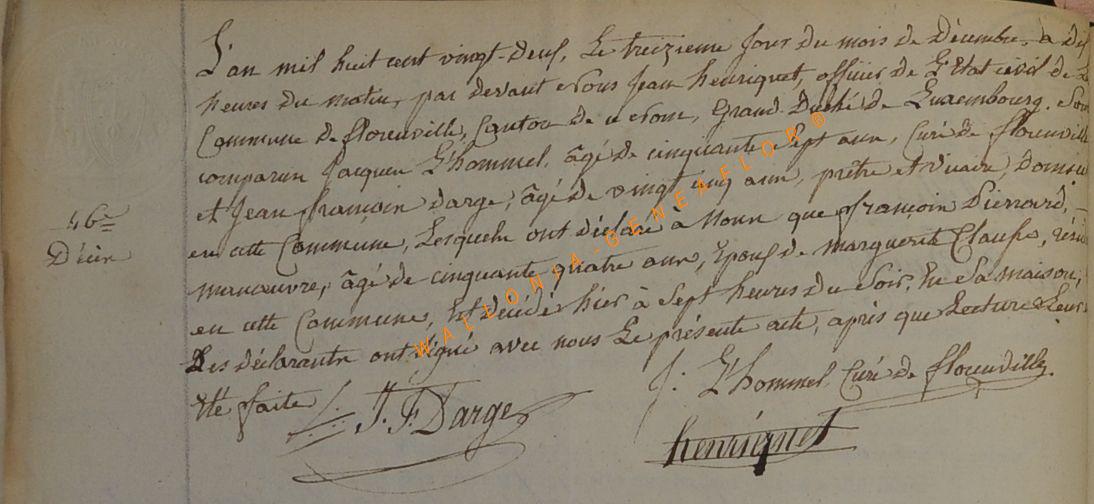 L'an mil huit cent vingt-deux, Le treizieme Jour du mois de Décembre, a dix
heures du matin, par devant Nous Jean henriquet, officier de L'Etat civil de La
Commune de florenville, Canton de ce Nom, Grand-Duché de Luxembourg. Sont
comparus Jacques L'hommel, âgé de cinquante Sept ans, Curé de florenville
et Jean françois darge, âgé de vingt cinq ans, prêtre et vicaire, Domicil
en cette Commune, Lesquels ont déclaré à Nous que françois Pierrard,
manœuvre, âgé de cinquante quatre ans, Epoux de marguerite Clausse, résid
en cette Commune, Est décédé hier à Sept heures du Soir, En Sa maison;
Les déclarants ont signé avec nous Le présente acte, après que Lecture Leur
été faite
46e
Décès
J. L'hommel Curé de florenville.
J. F. Darge
henriquet
WALLONIA-GENEAFLOR®